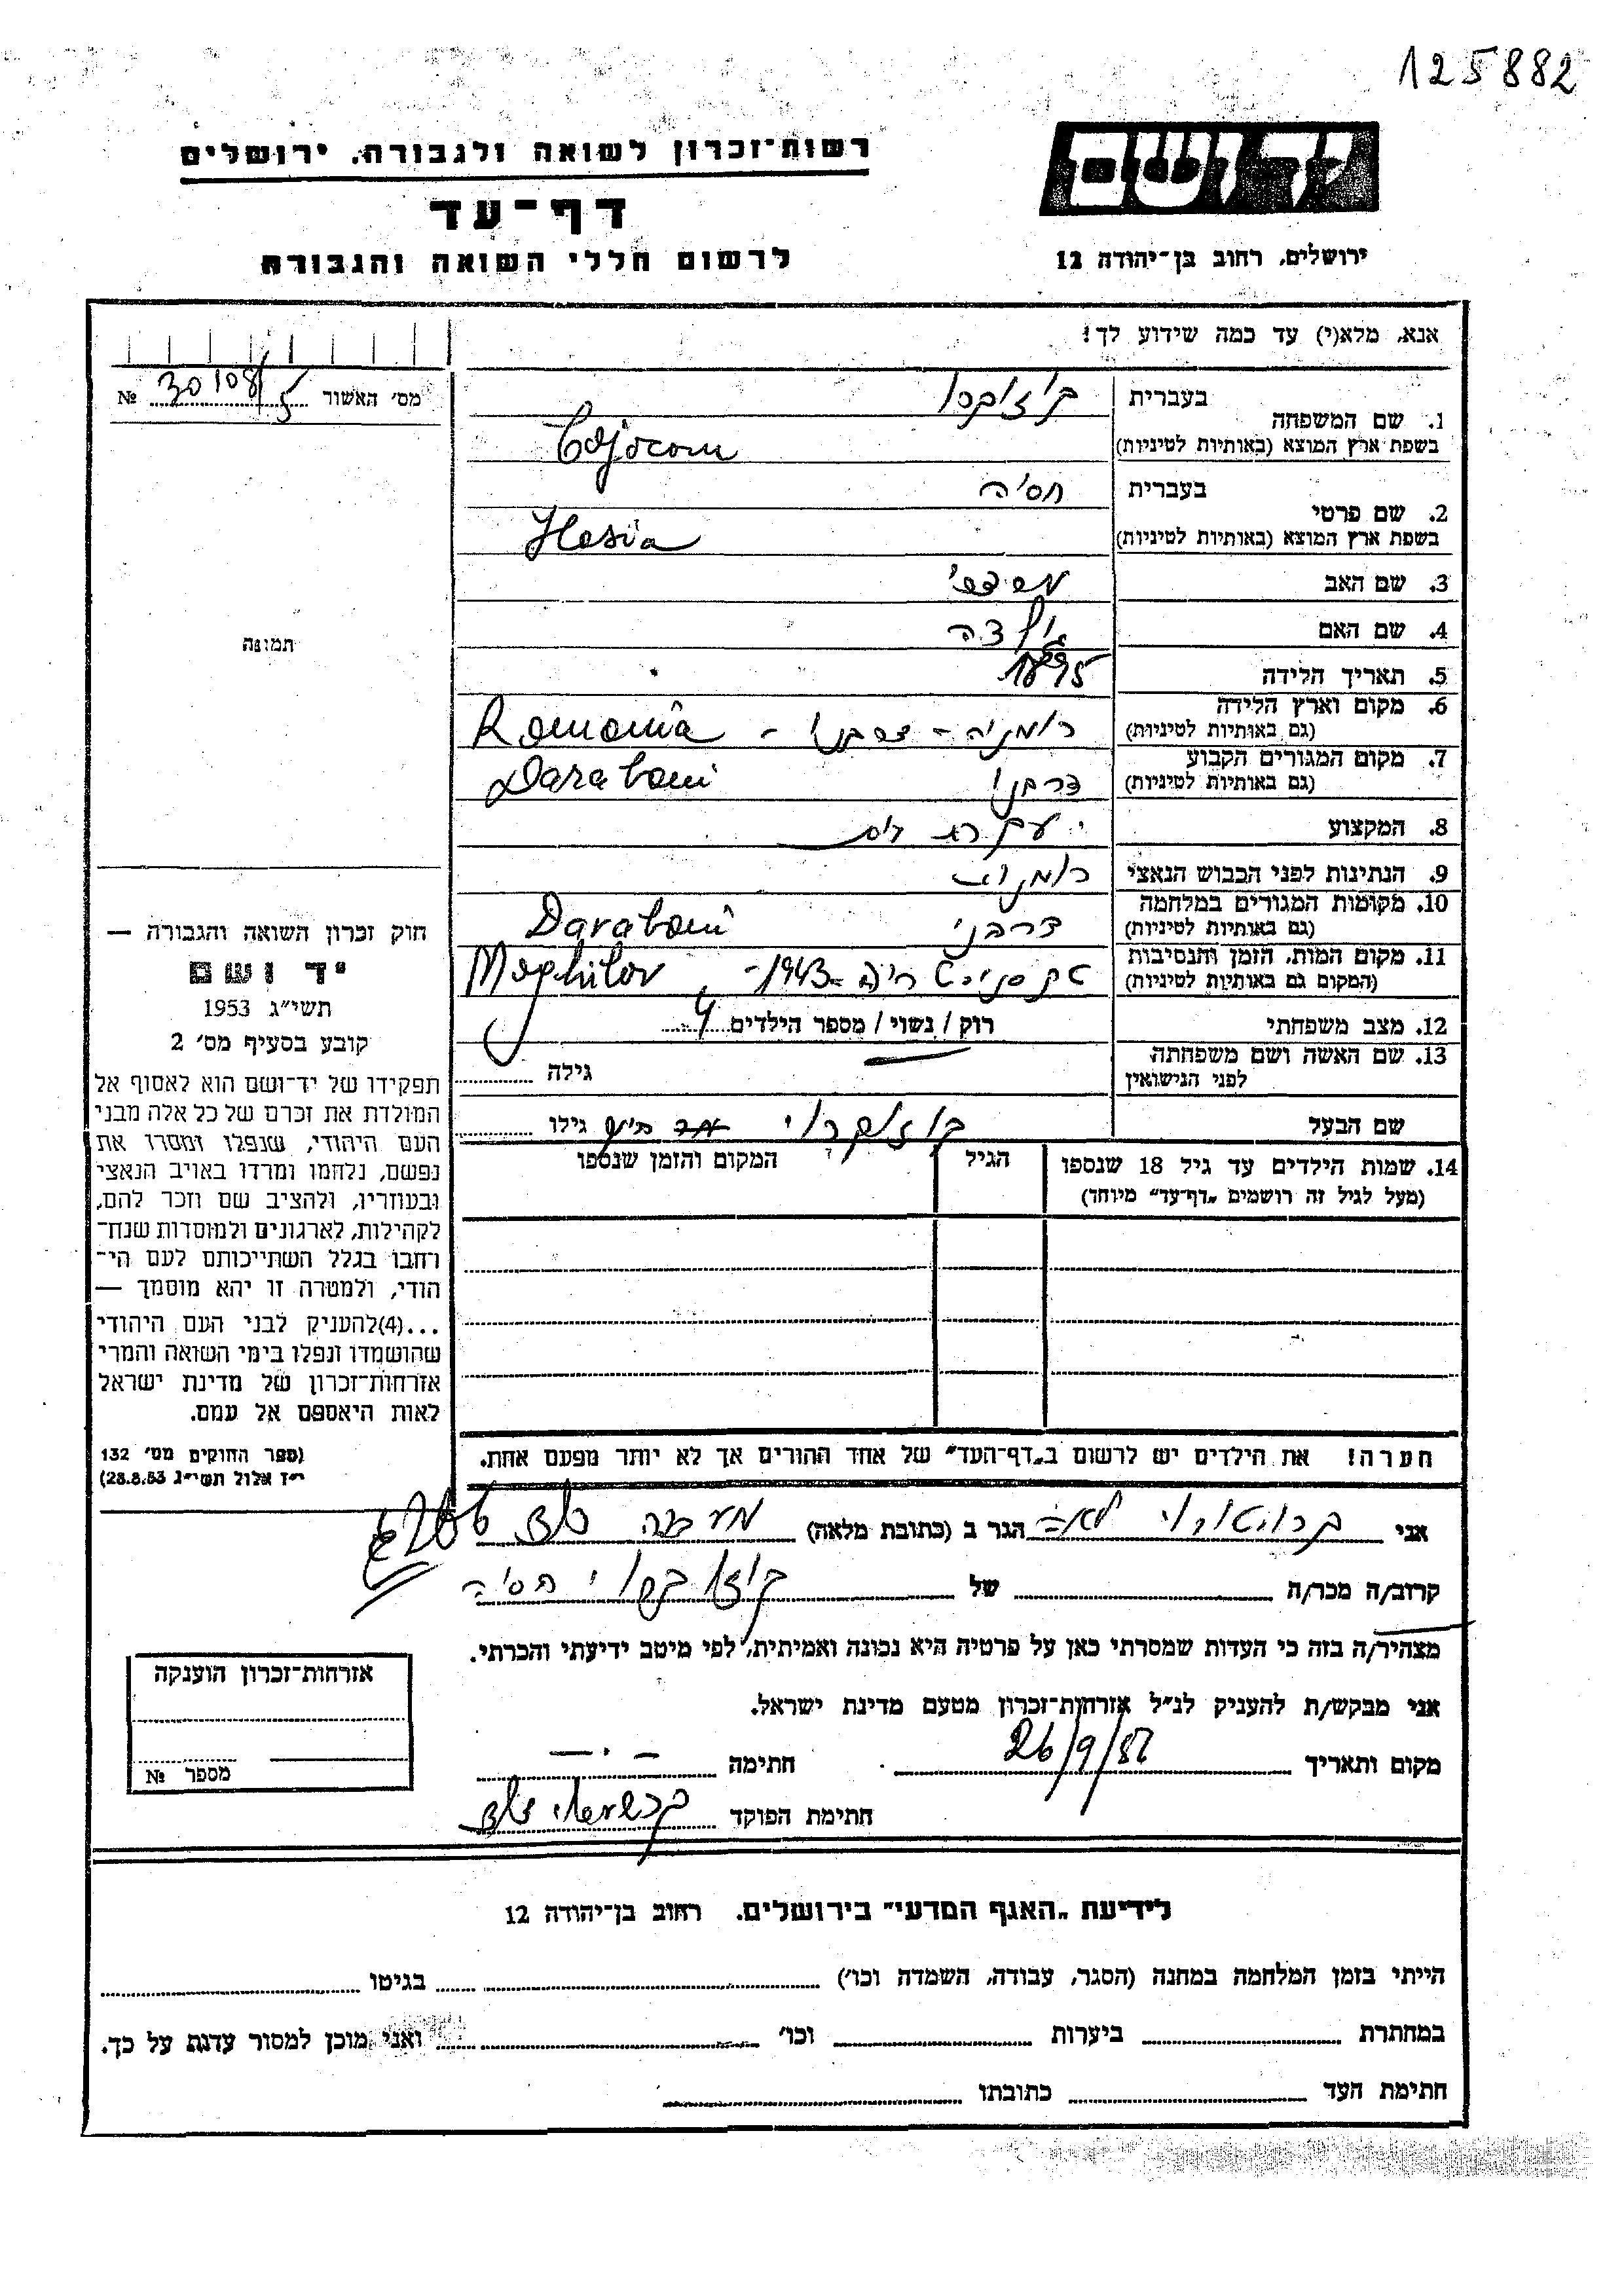 125882
יד ושם
רשות־זכרון לשואה ולגבורה, ירושלים
דף־עד
לרשום חללי השואה והגבורה
ירושלים, רחוב בן־יהודה 12
אנא, מלא(י) עד כמה שידוע לך!
מס׳ האשור 30108/5 №
1. שם המשפחה
בעברית
בשפת ארץ המוצא (באותיות לטיניות)
2. שם פרטי
בעברית חסיה
בשפת ארץ המוצא (באותיות לטיניות) Hasia
3. שם האב
4. שם האם
5. תאריך הלידה 1895
6. מקום וארץ הלידה רומניה - דרבני - Romania
(גם באותיות לטיניות)
7. מקום המגורים הקבוע דרבני Darabani
(גם באותיות לטיניות)
8. המקצוע
9. הנתינות לפני הכבוש הנאצי רומנית
10. מקומות המגורים במלחמה דרבני Darabani
(גם באותיות לטיניות)
11. מקום המות, הזמן והנסיבות טרנסניסטריה - 1943 - Moghilov
(המקום גם באותיות לטיניות)
12. מצב משפחתי רוק / נשוי / מספר הילדים 4
13. שם האשה ושם משפחתה
לפני הנישואין גילה
שם הבעל גילו
14. שמות הילדים עד גיל 18 שנספו
(מעל לגיל זה רושמים „דף־עד” מיוחד)
הגיל
המקום והזמן שנספו
הערה! את הילדים יש לרשום ב„דף־העד” של אחד ההורים אך לא יותר מפעם אחת.
תמונה
חוק זכרון השואה והגבורה —
יד ושם
תשי״ג 1953
קובע בסעיף מס׳ 2
תפקידו של יד־ושם הוא לאסוף אל
המולדת את זכרם של כל אלה מבני
העם היהודי, שנפלו ומסרו את
נפשם, נלחמו ומרדו באויב הנאצי
ובעוזריו, ולהציב שם וזכר להם,
לקהילות, לארגונים ולמוסדות שנח־
רחבו בגלל השתייכותם לעם הי־
הודי, ולמטרה זו יהא מוסמך —
...(4)להעניק לבני העם היהודי
שהושמדו ונפלו בימי השואה והמרי
אזרחות־זכרון של מדינת ישראל
לאות היאספם אל עמם.
(ספר החוקים מס׳ 132
י״ז אלול תשי״ג 28.8.53)
אני לאה הגר ב (כתובת מלאה)
קרוב/ה מכר/ה של חסיה
מצהיר/ה בזה כי העדות שמסרתי כאן על פרטיה היא נכונה ואמיתית, לפי מיטב ידיעתי והכרתי.
אני מבקש/ת להעניק לנ״ל אזרחות־זכרון מטעם מדינת ישראל.
מקום ותאריך 26/9/87 חתימה
חתימת הפוקד
אזרחות־זכרון הוענקה
מספר №
לידיעת „האגף המדעי” בירושלים, רחוב בן־יהודה 12
הייתי בזמן המלחמה במחנה (הסגר, עבודה, השמדה וכו׳) בגיטו
במחתרת ביערות וכו׳ ואני מוכן למסור עדות על כך.
חתימת העד כתובתו